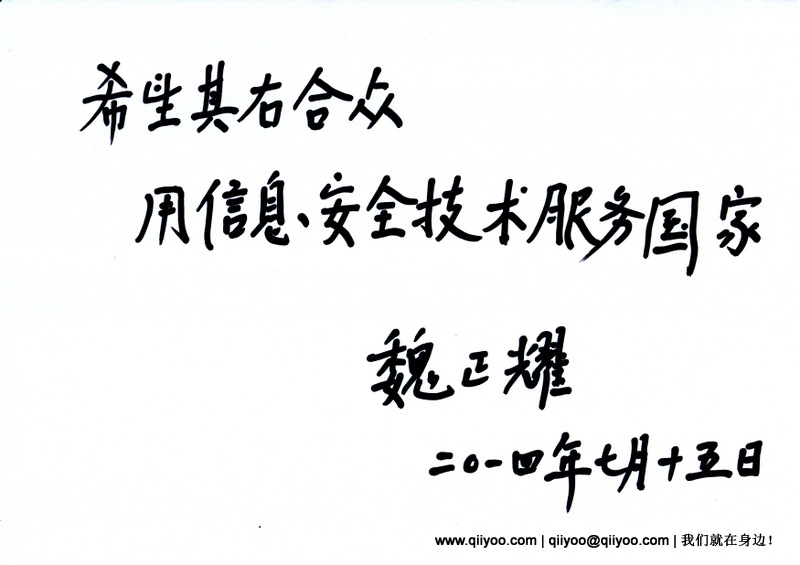 希望其右合众
用信息安全技术服务国家
魏正耀
二〇一四年七月十五日
www.qiiyoo.com | qiiyoo@qiiyoo.com | 我们就在身边！